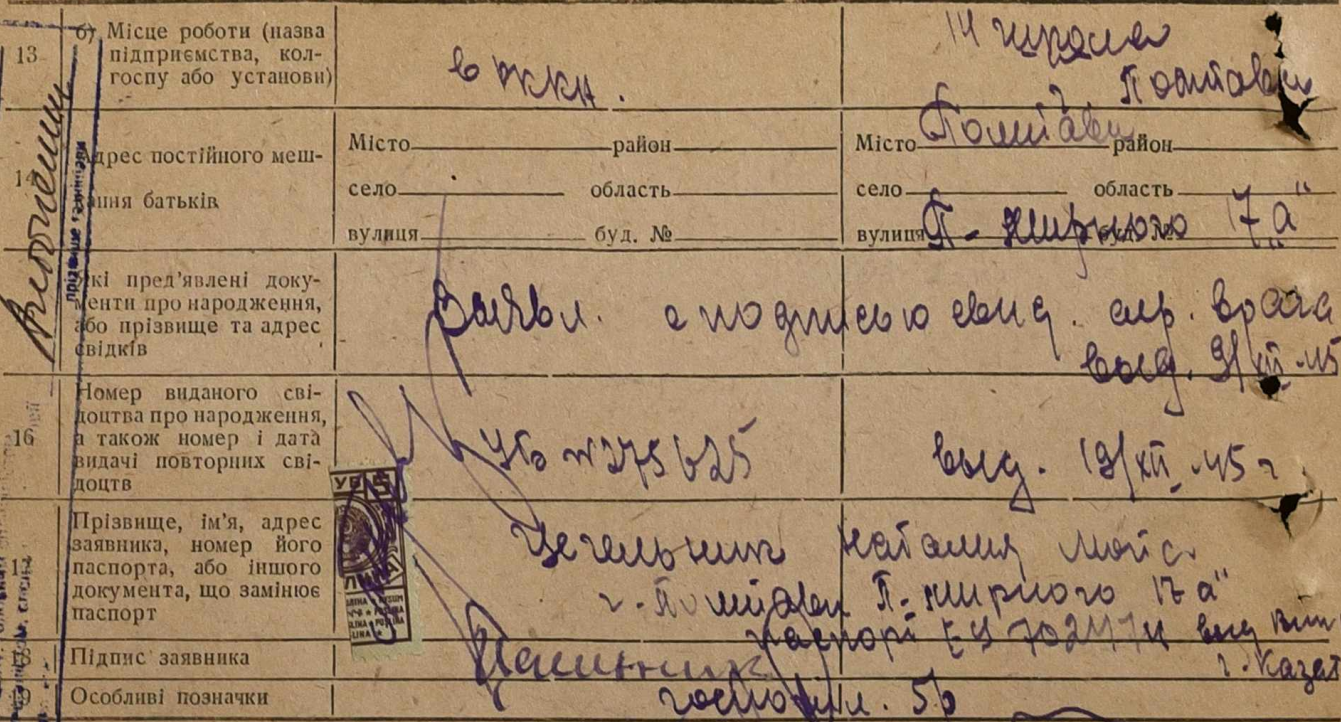 13 б) Місце роботи (назва
підприємства, кол-
госпу або установи)
в РККА.
14 школа
г Полтавы
14 Адрес постійного меш-
кання батьків
Місто район
село область
вулиця буд. №
Місто Полтава район
село область
вулиця П-Мирного 17 "а"
Які пред'явлені доку-
менти про народження,
або прізвище та адрес
свідків
Заявл. с подписью свид. врача
выд. 9/XII 45
16 Номер виданого сві-
доцтва про народження,
а також номер і дата
видачі повторних сві-
доцтв
УБ №275625 выд. 19/XII-45 г.
17 Прізвище, ім'я, адрес
заявника, номер його
паспорта, або іншого
документа, що замінює
паспорт
Цегельник Наталия Мойс.
г. Полтава П-Мирного 17 "а"
паспорт выд
г. Казат
Підпис заявника
19 Особливі позначки
госпошл. 5